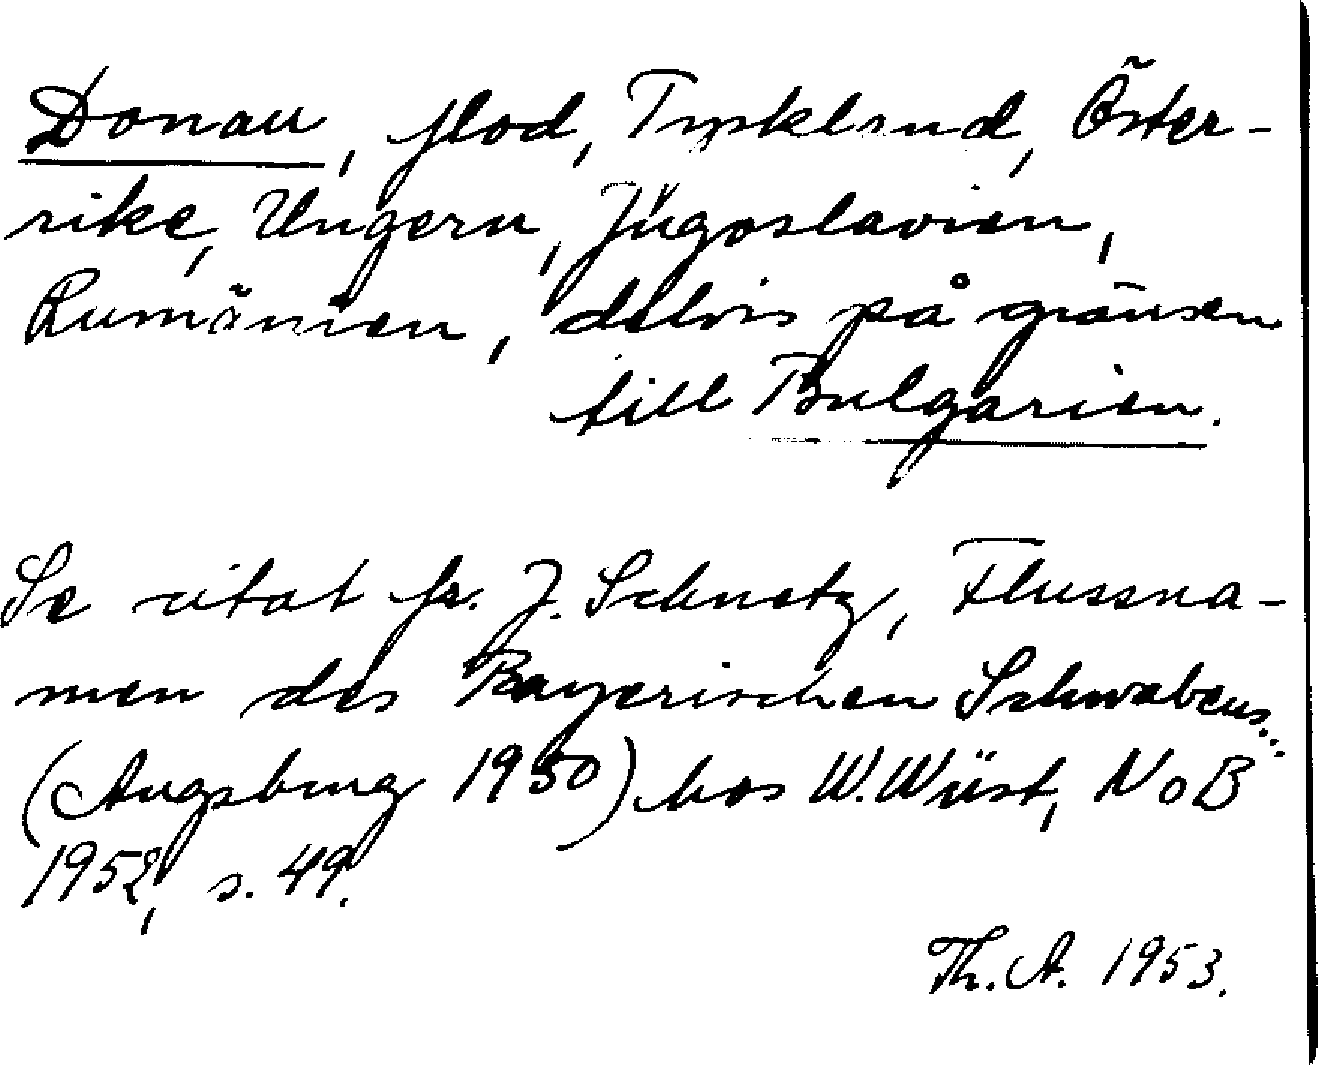 Donau, flod, Tyskland, Öster-
rike, Ungern, Jugoslavien,
Rumänien, delvis på gränsen
till Bulgarien.
Se citat fr. J. Schnetz, Flussna-
men des Bayerischen Schwabens...
(Augsburg 1950) hos W. Wüst, NoB
1952, s. 49.
Th. A. 1953.